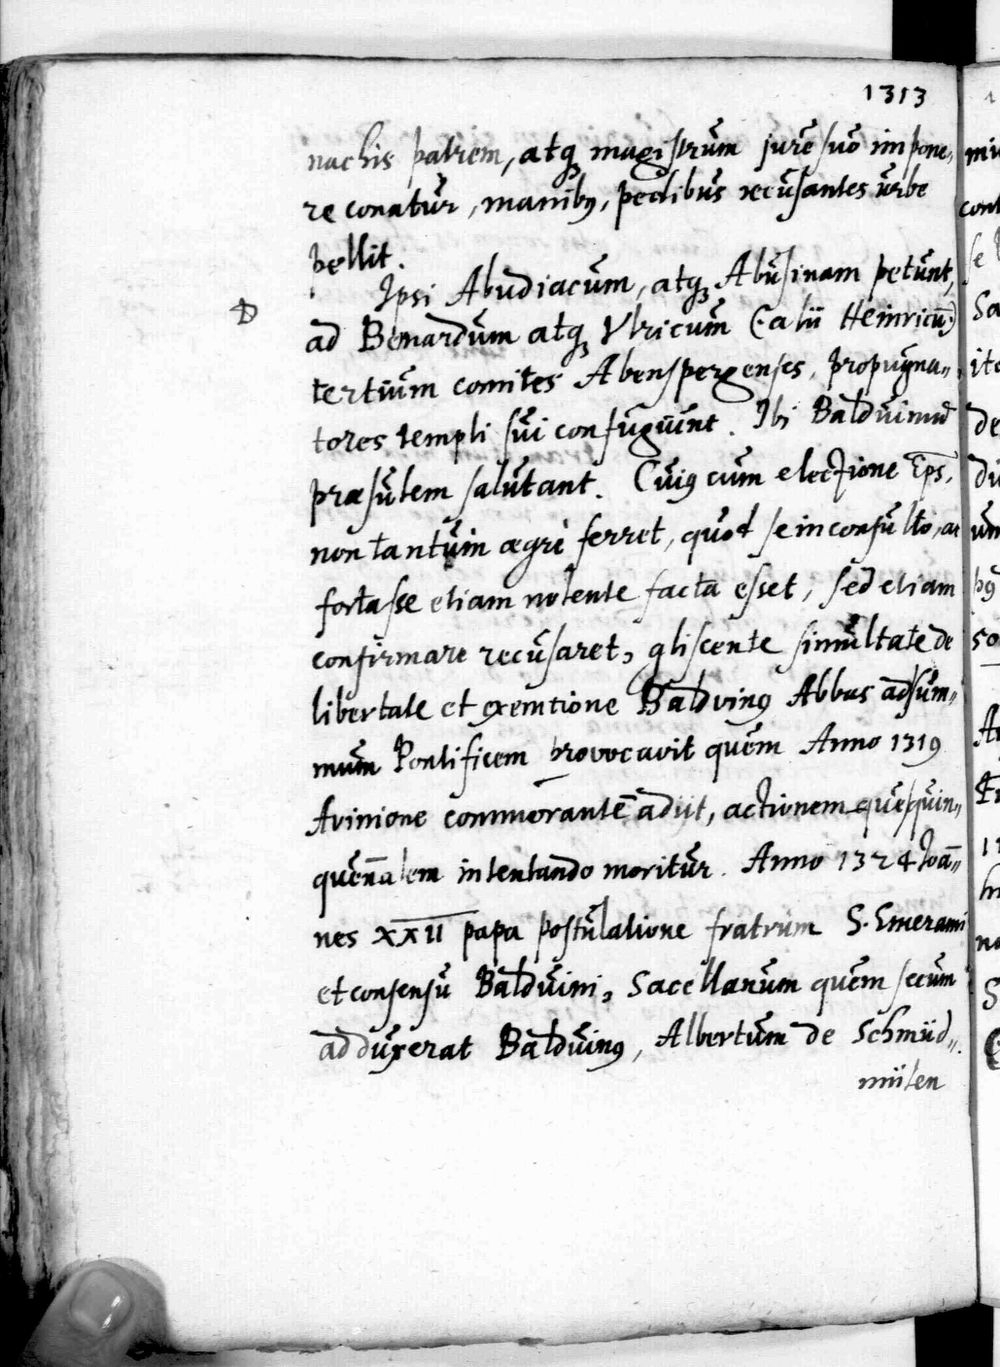 1313
nachis patrem, atq̨ magistrum jure suo impone„
re conatur, manibꝰ, pedibus recusantes urbe
pellit.
Ipsi Abudiacum, atq̨ Abusinam petunt,
ad Bernardum atq̨ Ulricum (:alii Heinricū:)
tertium comites Abenspergenses, propugna„
tores templi sui confugiunt. Ibi Balduinum
præsulem salutant. Cuiꝰ cum electione Ep̄s,
non tantum ægrè ferret, quod se inconsulto, ac
fortasse etiam nolente facta esset; sed etiam
confirmare recusaret, gliscente simultate de
libertate et exemtione Baldvinꝰ Abbas ad sum„
mum Pontificem provocavit quem Anno 1319
Avinione commorantē adijt, actionem que quin„
quen̄alem intentando moritur. Anno 1324 Joā„
nes XXII papa postulatione fratrum S. Emerami
et consensu Balduini, Sacellanum quem secum
adduxerat Balduinꝰ, Albertum de Schmid„
mülen